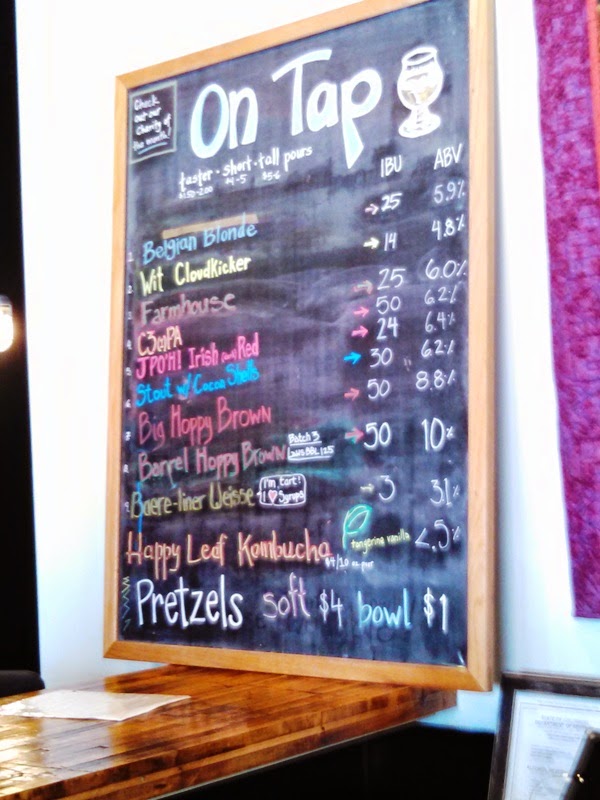 Check
out our
charity of
the month!
On Tap
taster · short · tall pours
$1.50-2.00 $4-5 $5-6
IBU ABV
1. Belgian Blonde → 25 5.9%
2. Wit Cloudkicker → 14 4.8%
3. Farmhouse → 25 6.0%
4. C3 → 50 6.2%
5. JPOH! Irish Red → 24 6.4%
6. Stout w/ Cocoa Shells → 30 6.2%
7. Big Hoppy Brown → 50 8.8%
8. Barrel Hoppy Brown Batch 3 → 50 10%
9. Baere-liner Weisse I'm tart! → 3 3.1%
I ♥ Syrups
Happy Leaf Kombucha tangerine vanilla <.5%
Pretzels soft $4 bowl $1